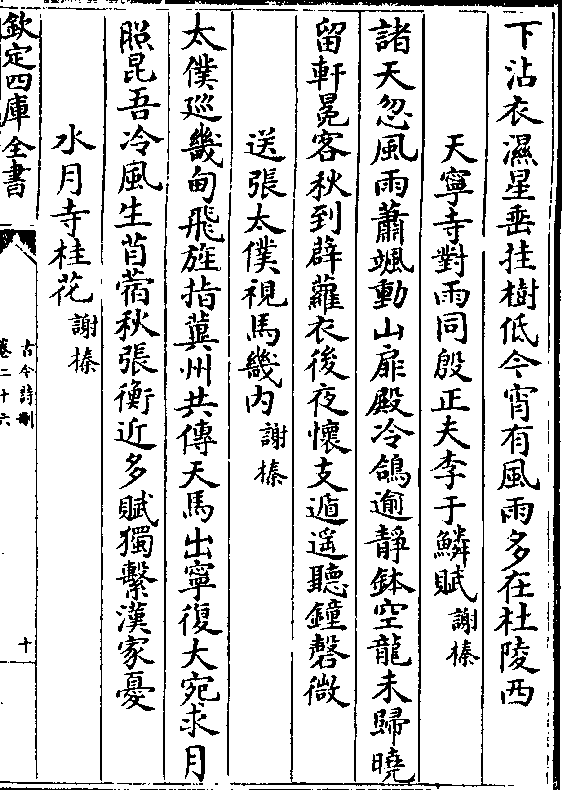 下沾衣濕星垂挂樹低今宵有風雨多在杜陵西
天寧寺對雨同殷正夫李于鱗賦 謝榛
諸天忽風雨蕭颯動山扉殿冷鴿逾靜鉢空龍未歸曉
留軒冕客秋到薜蘿衣後夜懷支遁遥聽鐘磬微
送張太僕視馬畿内 謝榛
太僕巡畿甸飛旌指冀州共傳天馬出寧復大宛求月
照昆吾冷風生苜蓿秋張衡近多賦獨繫漢家憂
水月寺桂花 謝榛
欽定四庫全書
古今詩刪
卷二十六
十